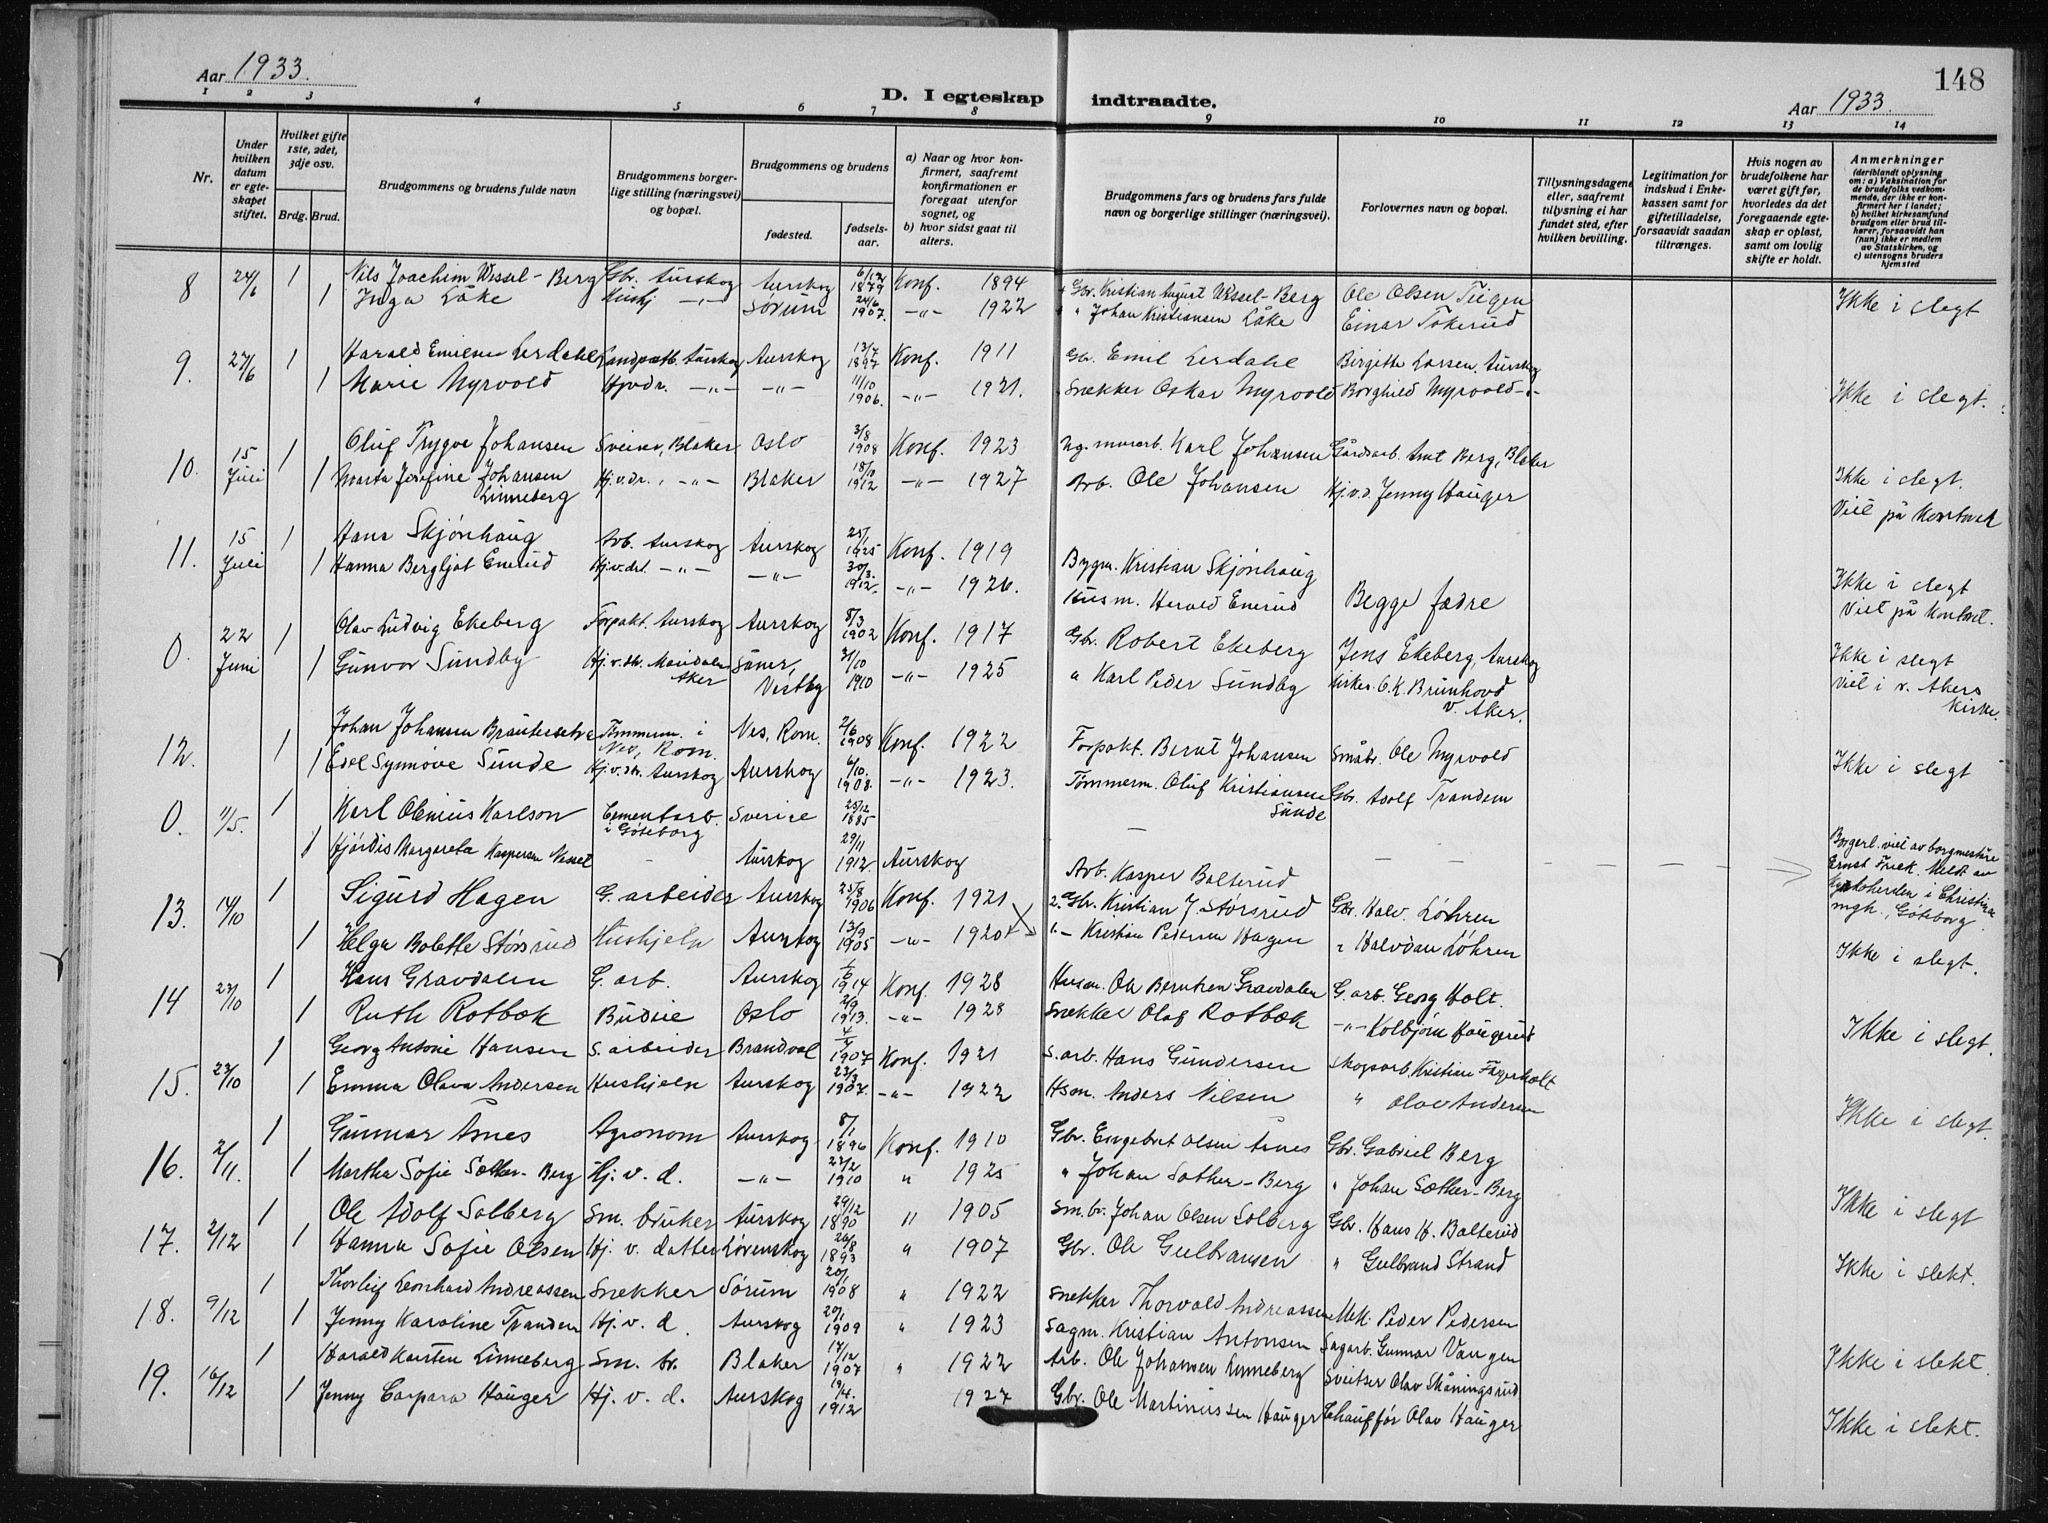 Aar 1933.
D. I egteskap indtraadte.
148
Aar 1933.
1 2 3 4 5 6 7 8 9 10 11 12 13 14
Nr.
Under hvilken datum er egteskapet stiftet.
Hvilket gifte 1ste, 2det, 3dje osv.
Brdg. Brud.
Brudgommens og brudens fulde navn
Brudgommens borgerlige stilling (næringsvei) og bopæl.
Brudgommens og brudens
fødested.
fødselsaar.
a) Naar og hvor konfirmert, saafremt konfirmationen er foregaat utenfor sognet, og
b) hvor sidst gaat til alters.
Brudgommens fars og brudens fars fulde navn og borgerlige stillinger (næringsvei).
Forlovernes navn og bopæl.
Tillysningsdagene eller, saafremt tillysning ei har fundet sted, efter hvilken bevilling.
Legitimation for indskud i Enkekassen samt for giftetilladelse, forsaavidt saadan tiltrænges.
Hvis nogen av brudefolkene har været gift før, hvorledes da det foregaaende egteskap er opløst, samt om lovlig skifte er holdt.
Anmerkninger (deriblandt oplysning om: a) Vaksination for de brudefolks vedkommende, der ikke er konfirmert her i landet; b) hvilket kirkesamfund brudgom eller brud tilhører, forsaavidt han (hun) ikke er medlem av Statskirken, og c) utensogns bruders hjemsted
8 24/6 1 Nils Joachim Wessel-Berg Gbr. Aurskog Aurskog 6/12 1879 Konf. 1894 Gbr. Kristian August Wessel-Berg Ole Olsen Teigen Ikke i slegt
1 Inga Låke Hushj -"- Sørum 24/6 1907. -"- 1922 " Johan Kristiansen Låke Einar Tokerud
9. 27/6 1 Harald Emilius Lerdahl Aurskog Aurskog 13/7 1897 Konf. 1911 Gbr. Emil Lerdahl Birgitte Larsen, Aurskog Ikke i slegt.
1 Marie Myrvold Hjvdr. -"- -"- 11/10 1906. -"- 1921. Snekker Oskar Myrvold Borghild Myrvold -"-
10. 15 Juli 1 Oluf Trygve Johansen Sveiser, Blaker Oslo 3/8 1908 Konf. 1923 Karl Johansen Gårdsarb. Berg, Blaker Ikke i slegt.
1 Marta Josefine Johansen Linneberg Hj.v.dr., -"- Blaker 18/10 1912 -"- 1927 Arb. Ole Johansen Hj.v.d. Jenny Hauger Viet på Kontoret
11. 15 Juli 1 Hans Skjønhaug Arb. Aurskog Aurskog 25/1 Konf. 1919 Bygm. Kristian Skjønhaug Begge fædre Ikke i slegt
1 Hanna Bergljot Enerud Hj.v.dt. -"- -"- 30/3. 1912. -"- 1926. Husm. Herold Enerud Viet på Kontoret.
0. 22 Juni 1 Olav Ludvig Ekeberg Forpakt. Aurskog Aurskog 8/3 1902 Konf. 1917 Gbr. Robert Ekeberg Jens Ekeberg, Aurskog Ikke i slegt
1 Gunvor Sundby Hj.v.dtr. Aker Såner, Vestby 31/10 1910 -"- 1925 " Karl Peder Sundby O.K. Brunhovd V. Aker. Viet i v. Akers Kirke.
12. 1 Johan Johansen Tømmerm. i Nes, Rom. Nes, Rom. 2/6 1908 Konf. 1922 Forpakt. Bernt Johansen Småbr. Ole Myrvold Ikke i slegt
1 Edel Synnøve Sunde Hj.v.dtr. Aurskog Aurskog 6/10. 1908. -"- 1923. Tømmerm. Oluf Kristiansen Sunde Gbr. Adolf Trandem
0. 11/5. 1 Karl Olenius Karlson Cementarb. i Göteborg Sverige 25/12 1885 —
1 Hjørdis Margreta Kaspersen Aurskog 29/11 1912. Aurskog Arb. Kasper Balterud Borgerl. viet av borgmestare Ernst Meldt av Kyrkoherden i Christinæ mgh., Göteborg.
13. 14/10 1 Sigurd Hagen G. arbeider Aurskog 25/8 1906 Konf. 1921 Gbr. Kristian J Størsrud Gbr. Halv. Løhren Ikke i slegt.
1 Helga Bolette Størsrud Hushjelp Aurskog 13/9 1905 -"- 1920 " Kristian Pedersen Hagen " Halvdan Løhren
14 23/10 1 Hans Gravdalen G. arb. Aurskog 1/6 1914 Konf. 1928 Husm. Ole Berntsen Gravdalen G. arb. Georg Holt. Ikke i slegt.
1 Ruth Rotbæk Budeie Oslo 2/9 1913. -"- 1928 Snekker Olaf Rotbæk -"- Kolbjørn Haugerud
15. 23/10 1 Georg Antoni Hansen S. arbeider Brandval 4/4 1907 Konf. 1921 S. arb. Hans Gundersen Skogsarb. Kristian Fagerholt Ikke i slegt.
1 Emma Olava Andersen Hushjelp Aurskog 23/9 1907. -"- 1922 Hsm. Anders Nilsen " Olav Andersen
16. 2/11. 1 Gunnar Årnes Agronom Aurskog 8/1 1896 Konf. 1910 Gbr. Engebret Olsen Årnes Gbr. Gabriel Berg Ikke i slegt
1 Martha Sofie Sæther-Berg Hj. v. d. -"- 22/2 1910 " 1925 " Johan Sæther-Berg " Johan Sæther-Berg
17. 2/12 1 Ole Adolf Solberg Sm. bruker Aurskog 29/12 1890 " 1905 Sm.br. Johan Olsen Solberg Gbr. Hans H. Balterud Ikke i slekt.
1 Hanna Sofie Olsen Hj. v. datter Lørenskog 26/8 1893 " 1907 Gbr. Ole Gulbransen " Gulbrand Strand
18. 9/12 1 Thorleif Leonhard Andreassen Snekker Sørum 20/1 1908 " 1922 Snekker Thorvald Andreassen Mek. Peder Pedersen Ikke i slekt
1 Jenny Karoline Trandem Hj. v. d. Aurskog 20/1 1909 " 1923 Sagm. Kristian Antonsen Sagarb. Gunnar Vangen
19. 16/12 1 Harald Karsten Linneberg Sm. br. Blaker 17/12 1907 " 1922 Arb. Ole Johansen Linneberg Sveitser Olav Skåningsrud Ikke i slekt.
1 Jenny Caspara Hauger Hj. v. d. Aurskog 19/4. 1912 1927 Gbr. Ole Martiniussen Hauger Chauffør Olav Hauger